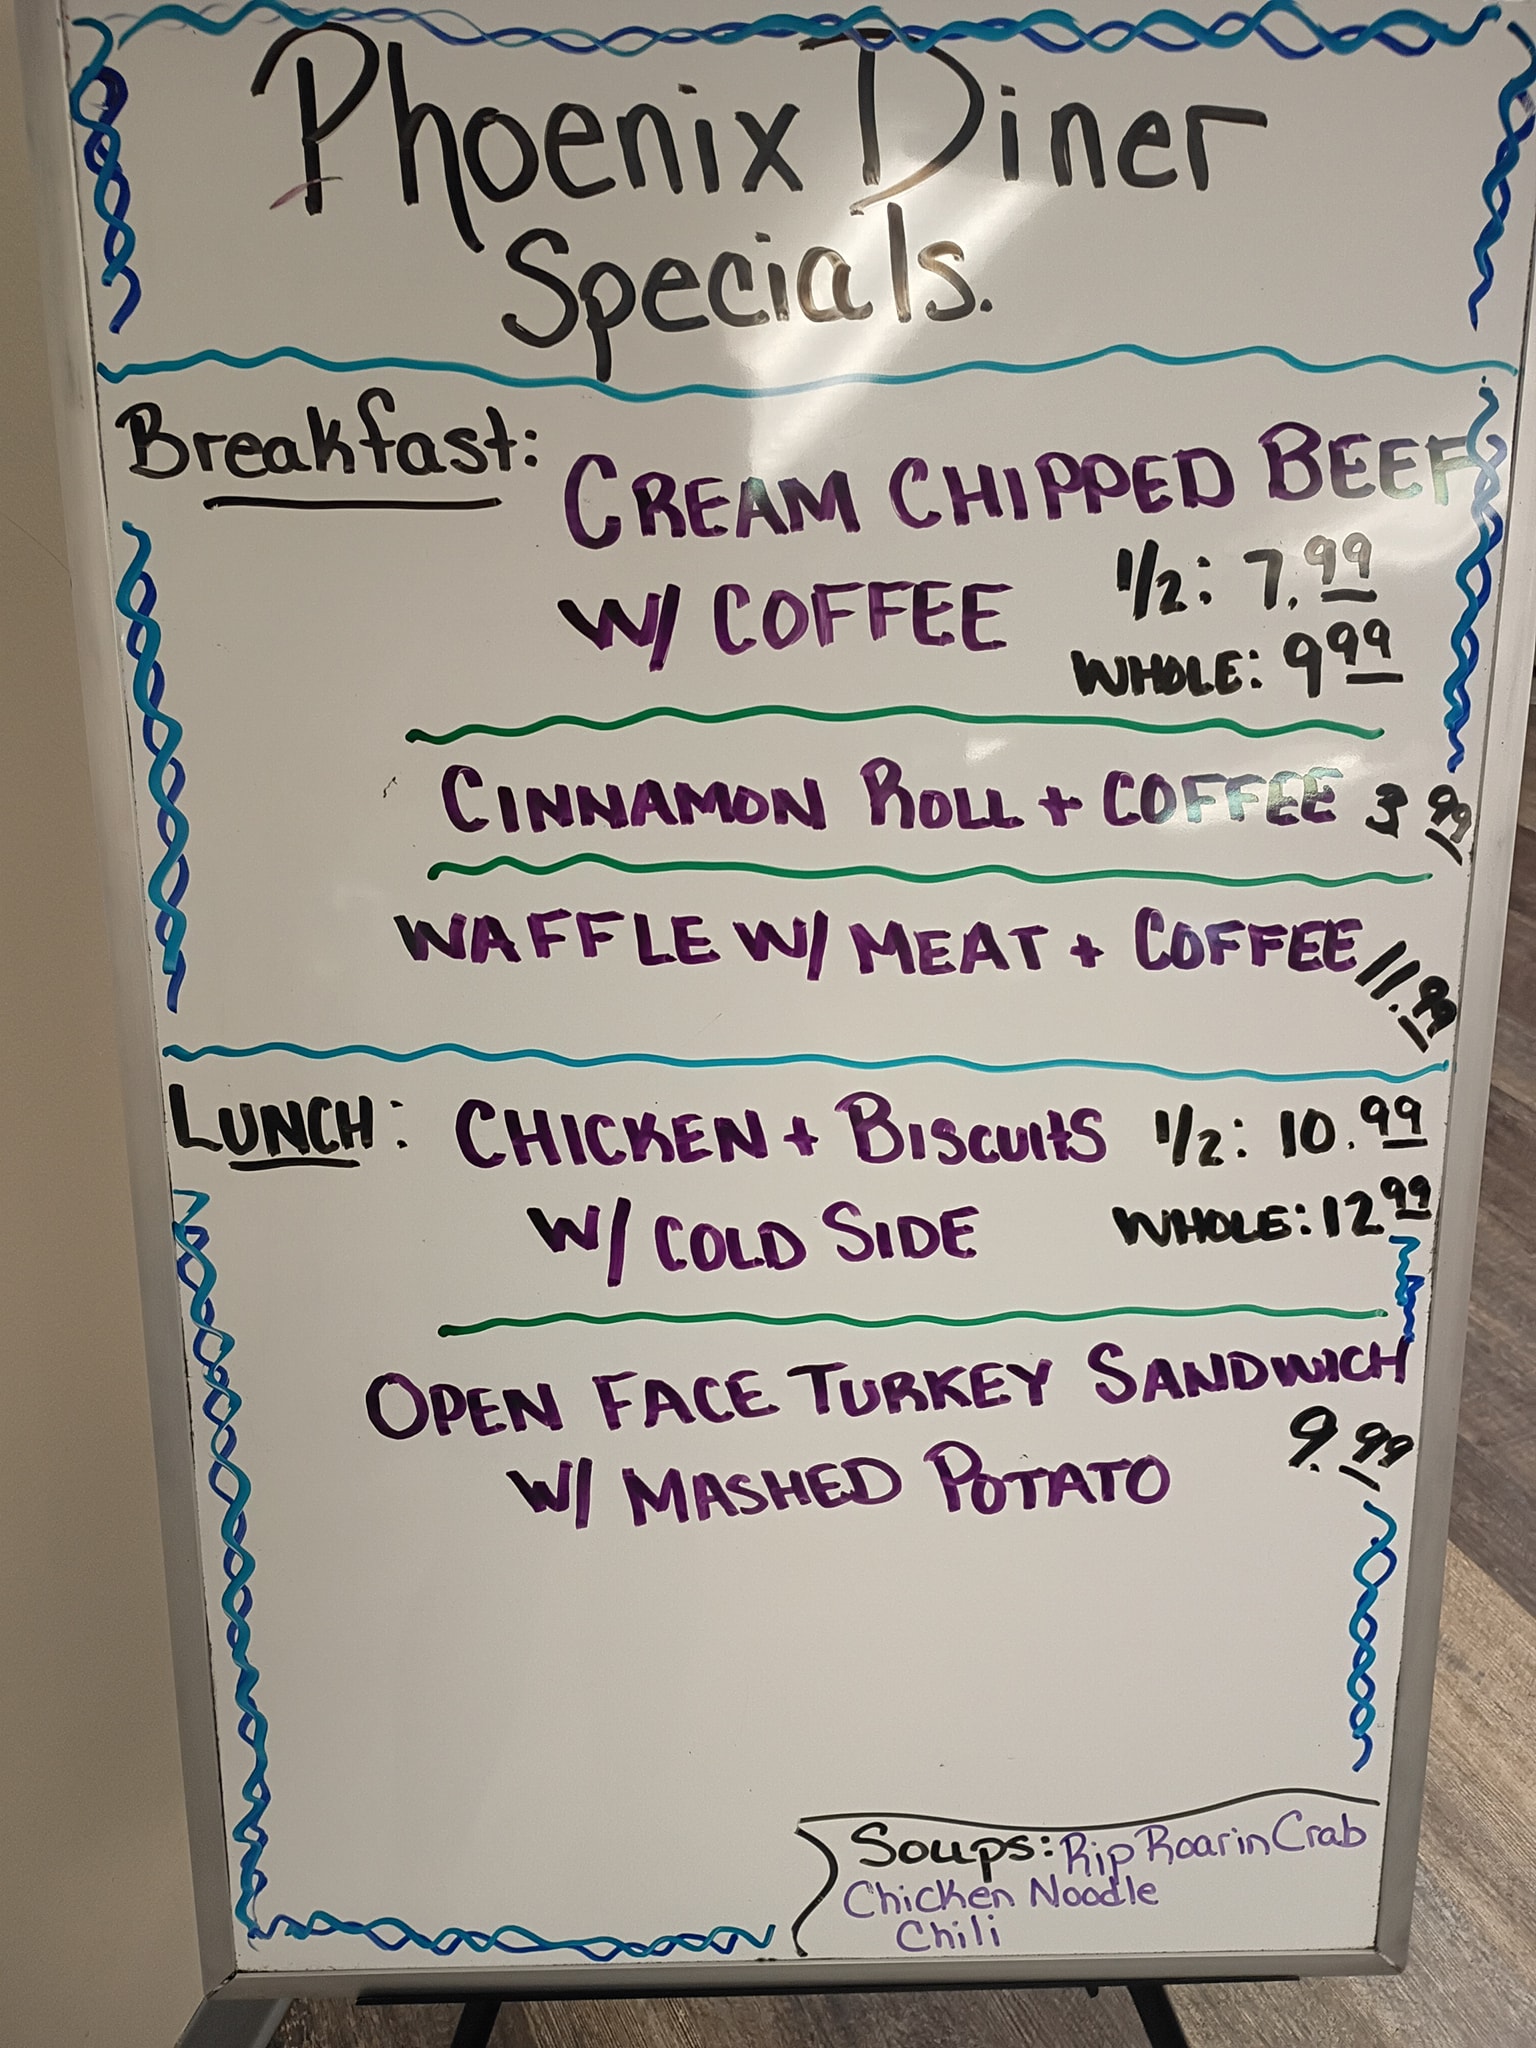 Phoenix Diner
Specials.
Breakfast: CREAM CHIPPED BEEF
W/ COFFEE 1/2: 7.99
WHOLE: 9 99
CINNAMON ROLL + COFFEE 3 99
WAFFLE W/ MEAT + COFFEE 11.99
LUNCH: CHICKEN + BISCUITS 1/2: 10.99
W/ COLD SIDE WHOLE: 12.99
OPEN FACE TURKEY SANDWICH
W/ MASHED POTATO 9.99
Soups: Rip Roarin Crab
Chicken Noodle
Chili